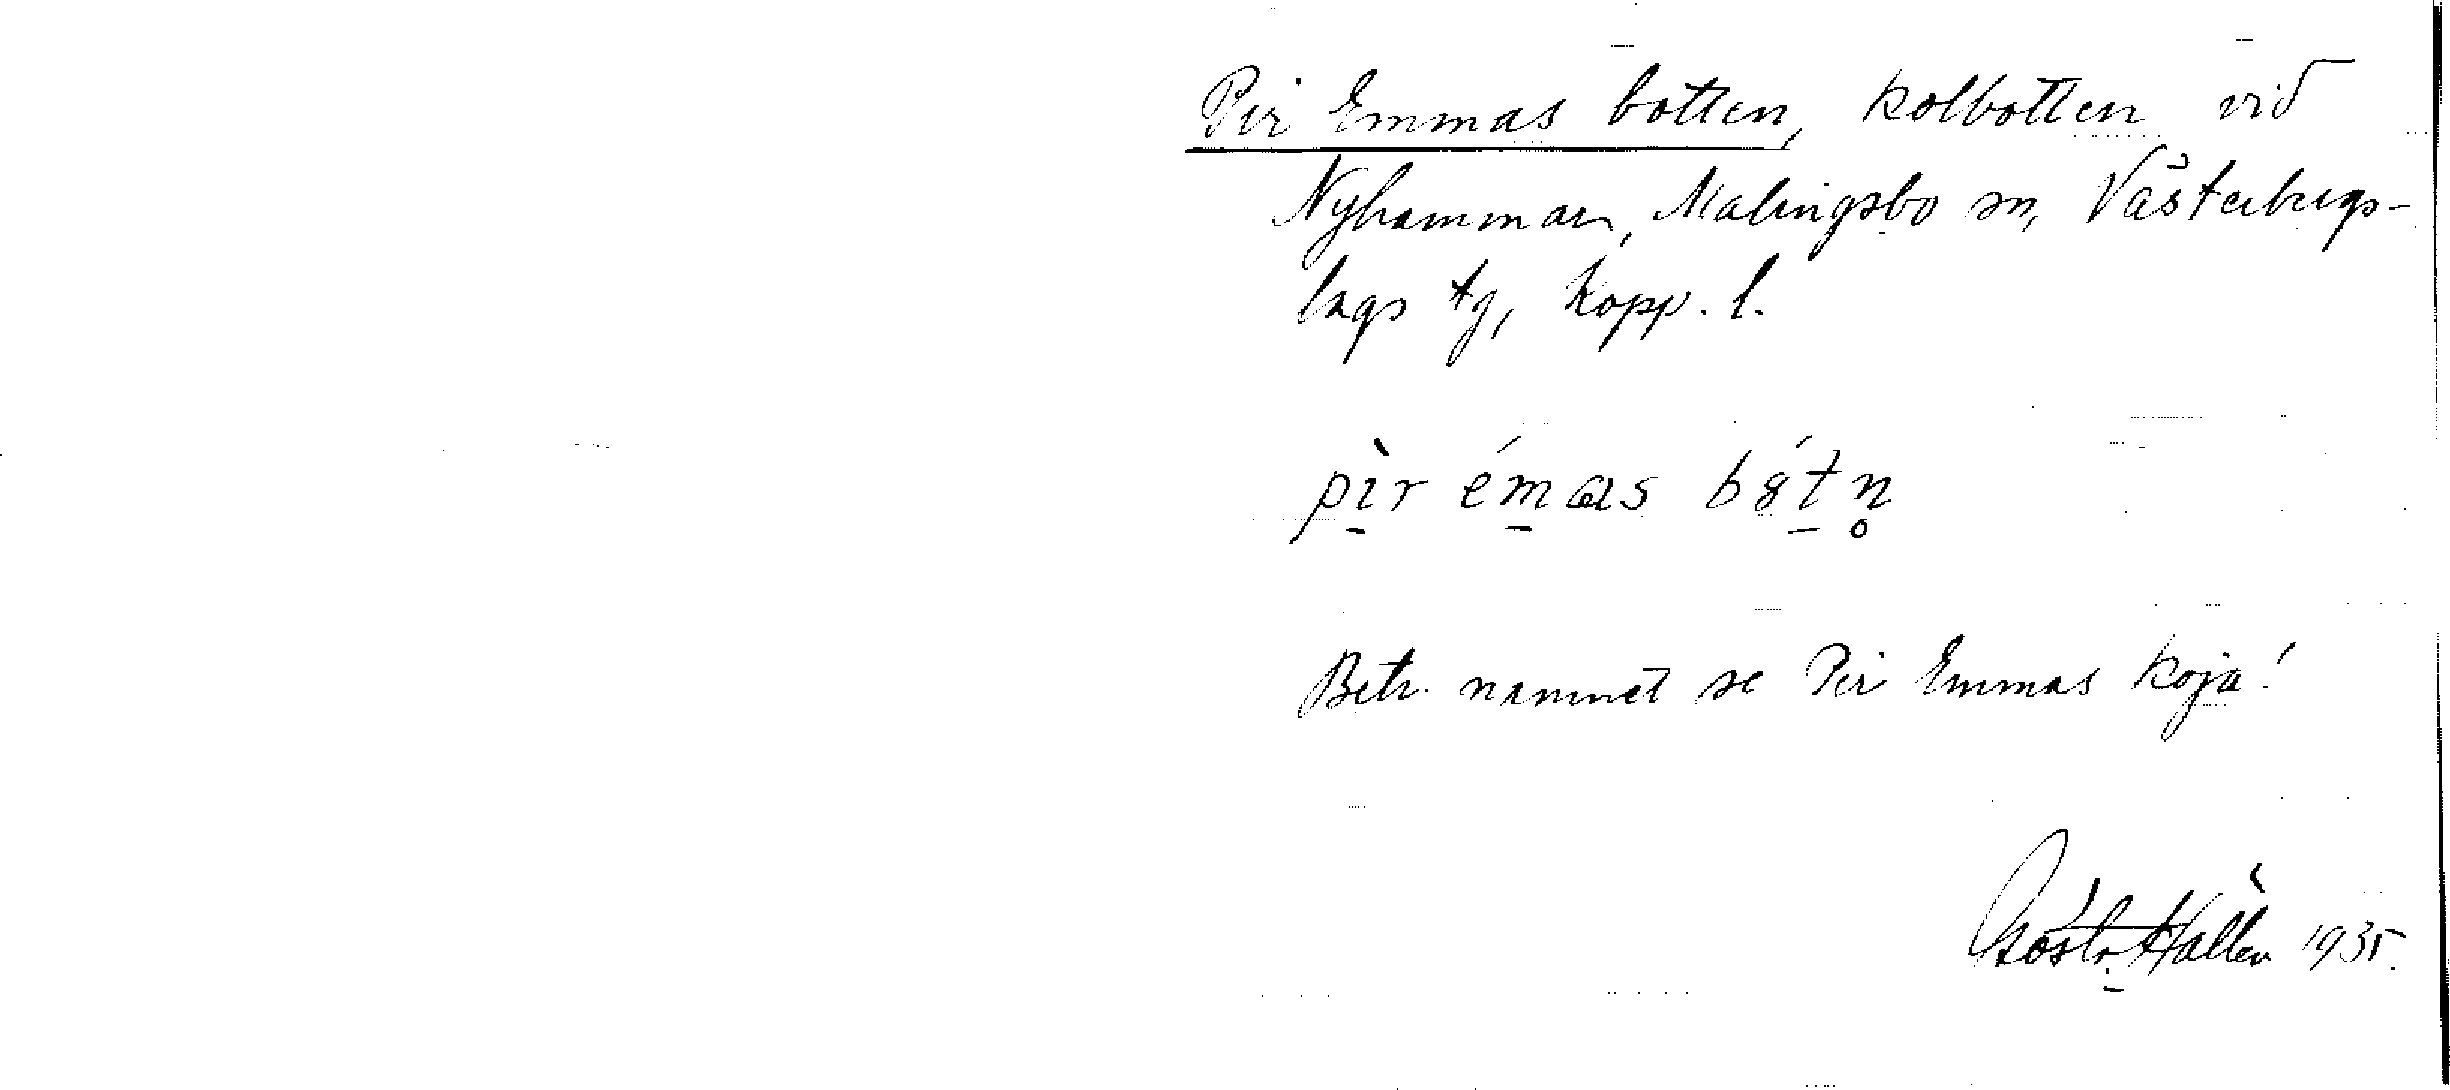 Pir Emmas botten, kolbotten vid
Nyhammar, Malingsbo sn, Västerbergs-
lags tg, Kopp. l.
pìr émas bótn̥
Betr. namnet se Pir Emmas koja!
Gösta Hallén 1935.